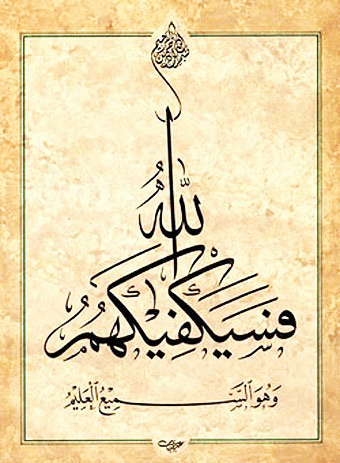 بسم الله الرحمن الرحيم
فَسَيَكْفِيكَهُمُ اللّٰهُ
وَهُوَ السَّمِيعُ الْعَلِيمُ